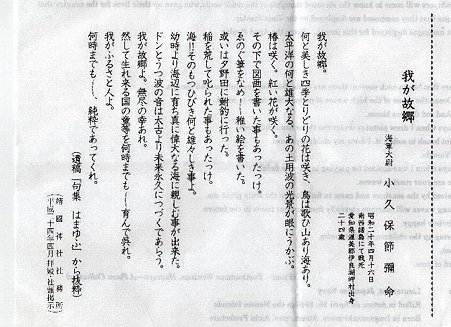 我が故郷
海軍大尉 小久保節彌命
昭和二十年四月十六日
南西諸島にて戦死
愛知県渥美郡伊良湖岬村出身
二十四歳
我が故郷。
何と美しき四季とりどりの花は咲き、鳥は歌ひ山あり海あり。
太平洋の何と雄大なる、あの土用波の光景が眼にうかぶ。
椿は咲く。紅い花が咲く。
その下で図画を書いた事もあったっけ。
ゑのぐ筆をなめ!!、稚い絵を書いた。
或いは夕野田に鮒釣に行った。
稲を荒して叱られた事もあったっけ。
海!!そのもつひびき何と雄々しき事よ。
幼時より海辺に育ち真に偉大なる海に親しむ事が出来た。
ドンとうつ波の音は太古より未来永久につづくであらう。
我が故郷よ。無尽の幸あれ。
然して生れ来る国の童等を何時までも!!育んで呉れ。
我がふるさと人よ。
何時までも!!、純粋であってくれ。
(遺稿「句集 はまゆふ」から抜粋)
靖國神社社務所
(平成二十四年四月拝殿社頭掲示)